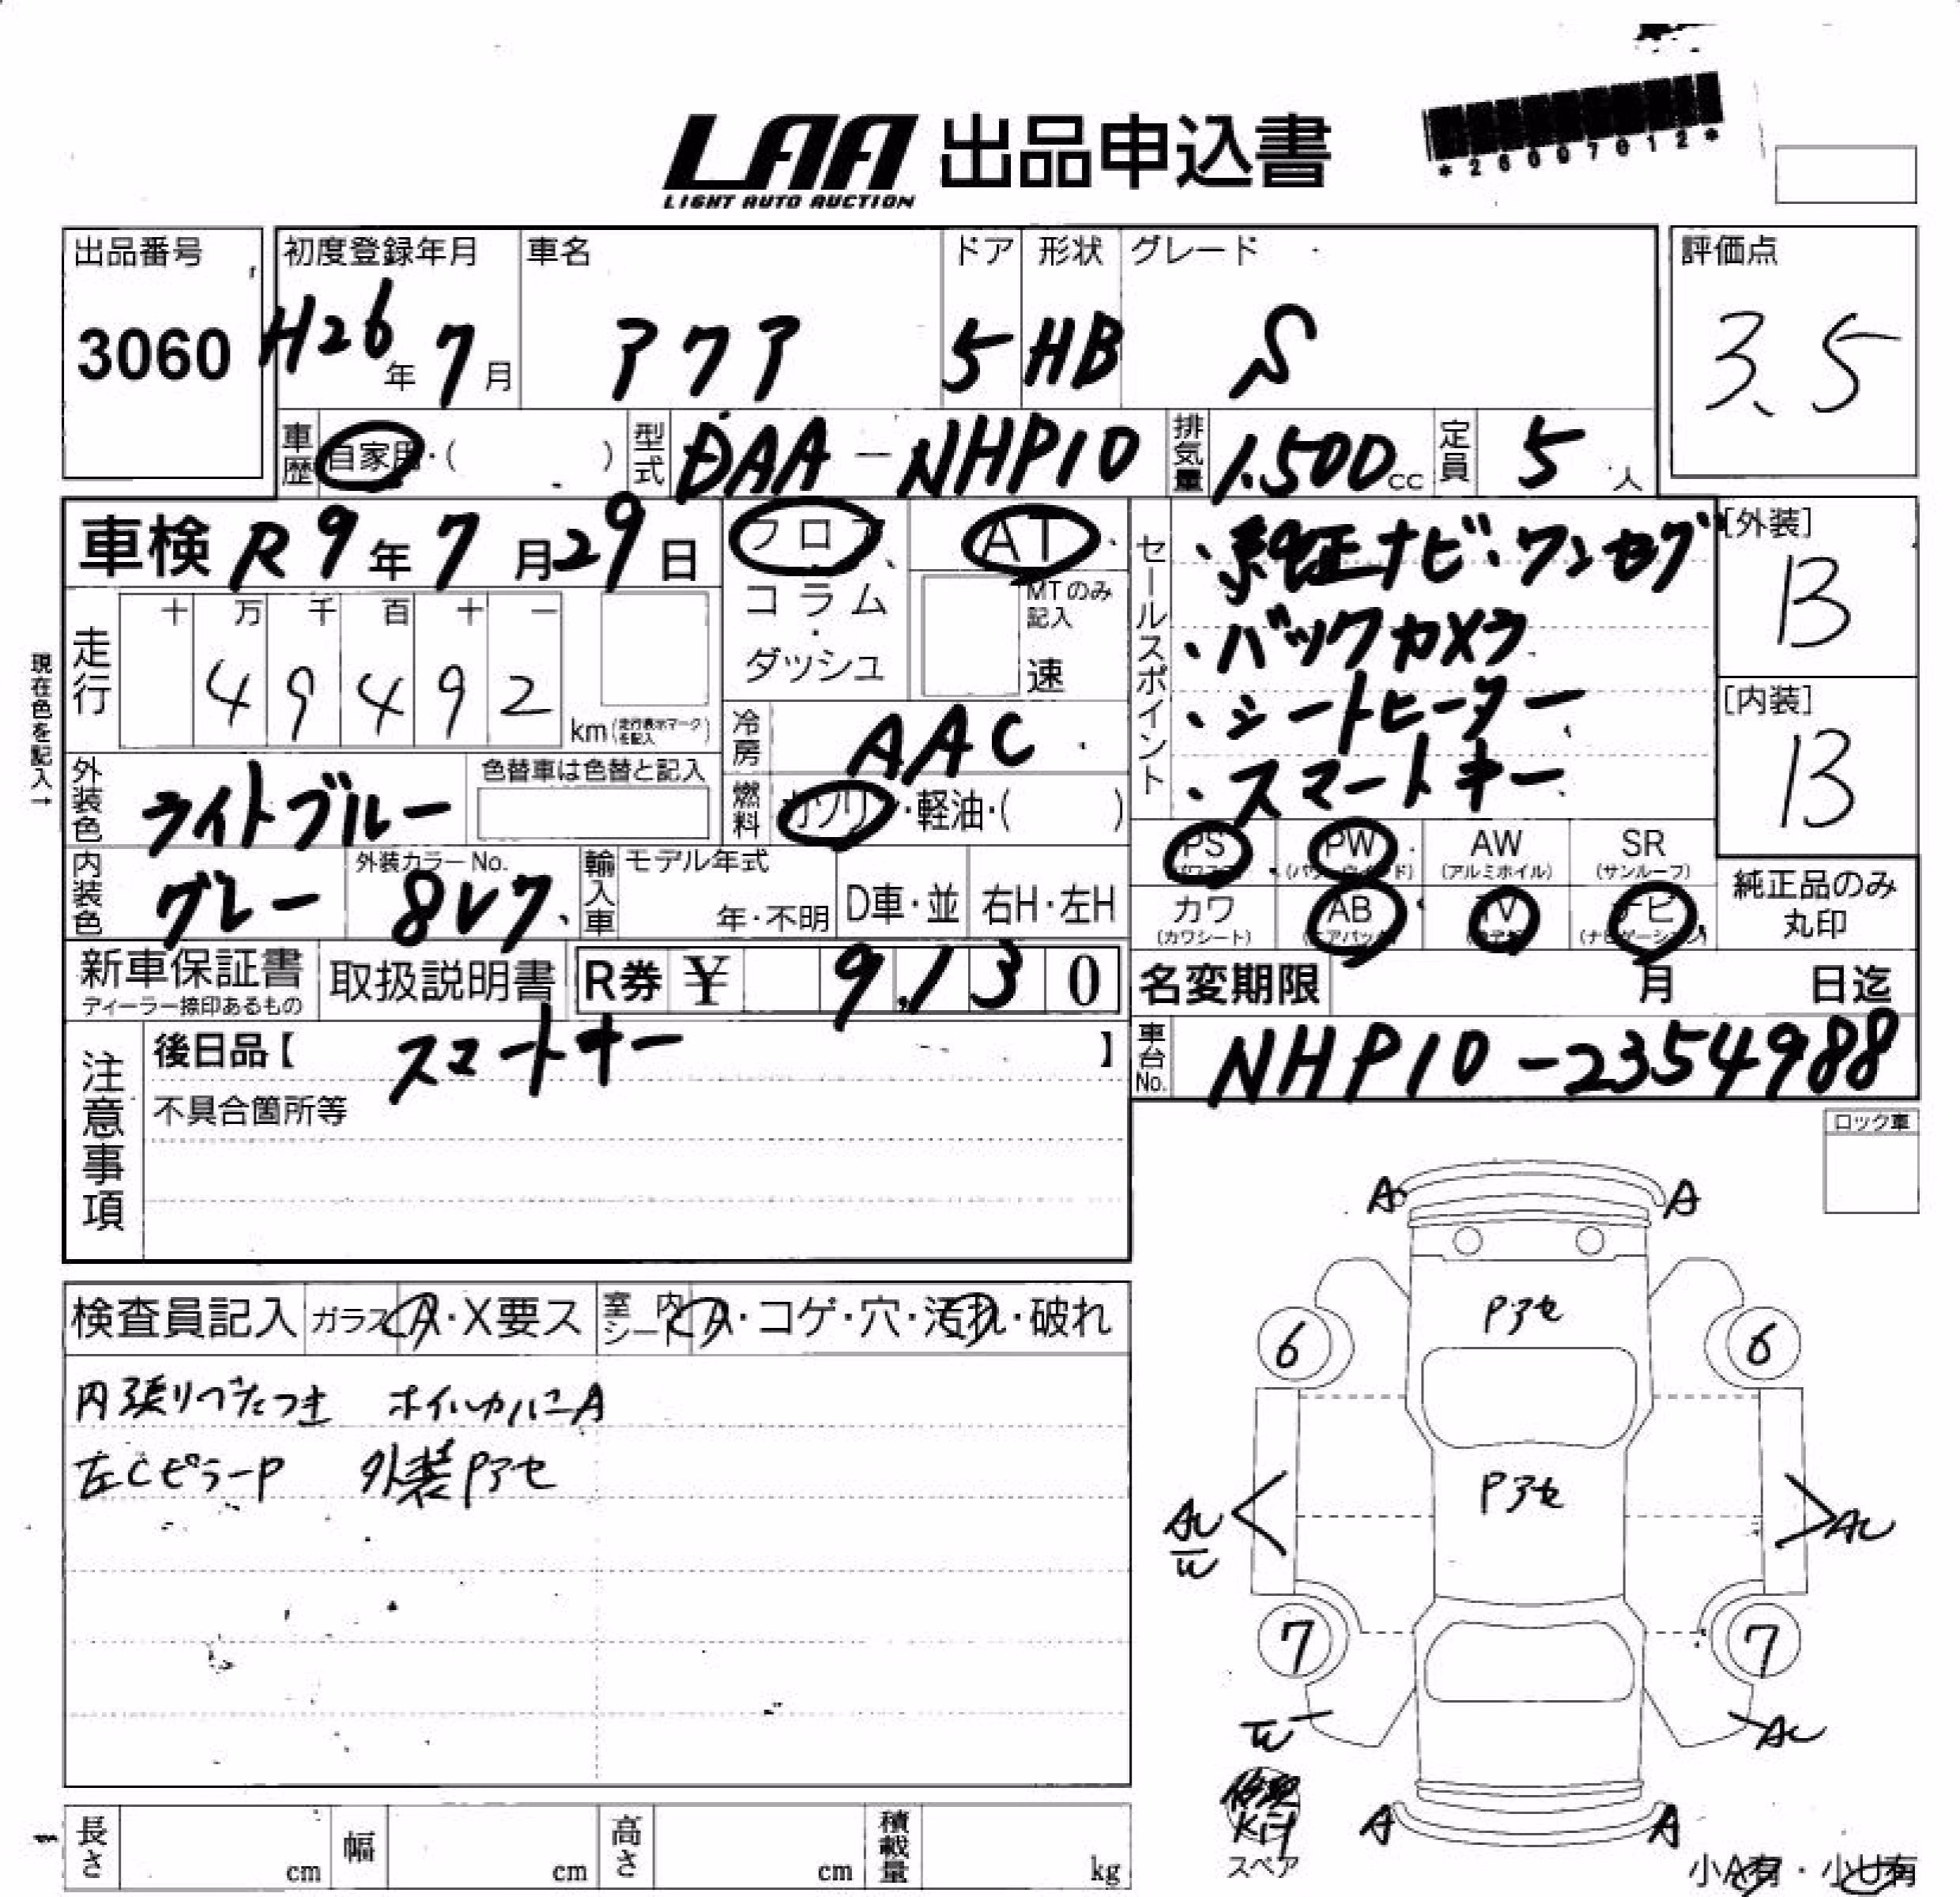 LAA 出品申込書
LIGHT AUTO AUCTION
*26007012*
出品番号
3060
初度登録年月
H26年 7月
車名
アクア
ドア
5
形状
HB
グレード
S
評価点
3.5
車歴 自家用・( )
型式 DAA-NHP10
排気量 1.500cc
定員 5人
車検 R9年7月29日
フロア、
コラム
・
ダッシュ
AT
MTのみ記入
速
セールスポイント
・純正ナビ・ワンセグ
・バックカメラ
・シートヒーター
・スマートキー
[外装]
B
[内装]
B
現在色を記入→
走行
十 万 千 百 十 一
4 9 4 9 2
km(走行表示マークを記入)
冷房 AAC
燃料 ガソリン・軽油・( )
外装色 ライトブルー
色替車は色替と記入
内装色 グレー
外装カラーNo.
8V7
輸入車
モデル年式
年・不明
D車・並
右H・左H
PS (パワステ)
PW (パワーウインド)
AW (アルミホイル)
SR (サンルーフ)
カワ (カワシート)
AB (エアバック)
TV
ナビ (ナビゲーション)
純正品のみ
丸印
新車保証書
ディーラー捺印あるもの
取扱説明書
R券 ¥ 9,130
名変期限 月 日迄
車台No. NHP10-2354988
注意事項
後日品【 スマートキー 】
不具合箇所等
ロック車
検査員記入
ガラス A・X要ス
室内シート A・コゲ・穴・汚れ・破れ
内張りべたつき ホイルカバーA
左CピラーP 外装Pアセ
A A
Pアセ
6 6
Pアセ
AU
W
AU
7 7
W
AU
修理
Kit
スペア
A A
小A有・小U有
長さ cm
幅 cm
高さ cm
積載量 kg